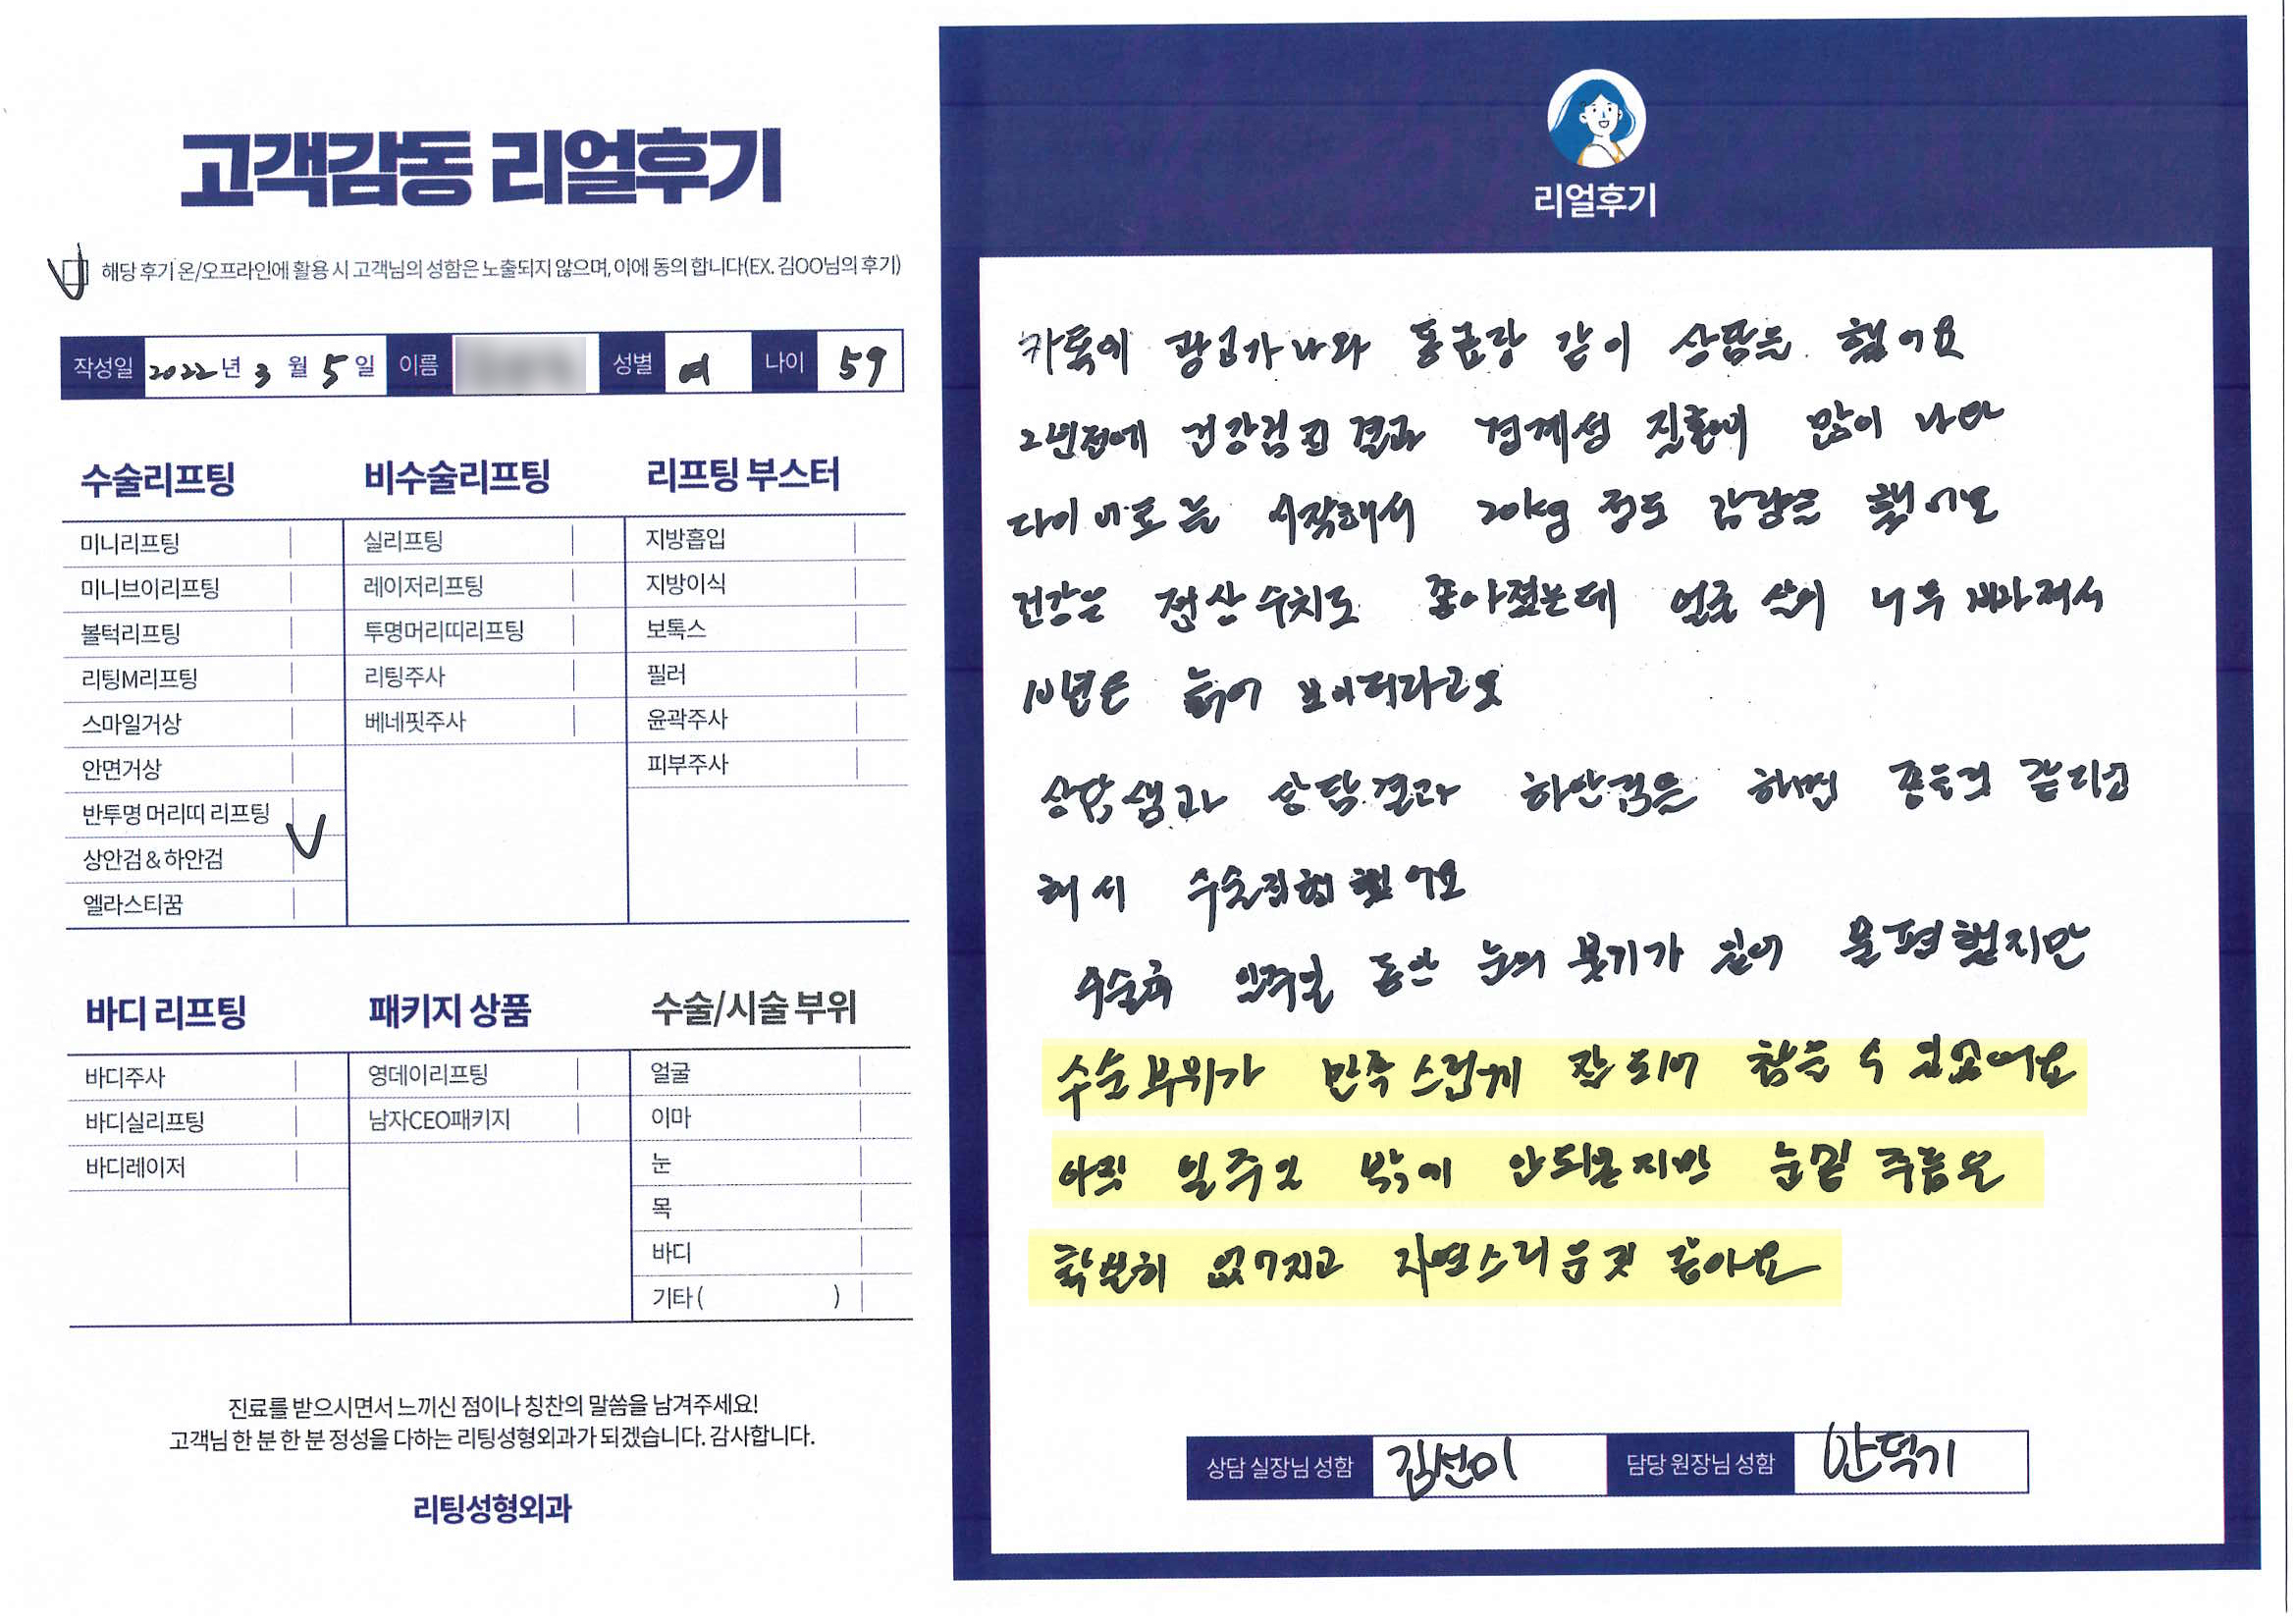 고객감동 리얼후기
해당 후기 온/오프라인에 활용 시 고객님의 성함은 노출되지 않으며, 이에 동의 합니다(EX. 김OO님의 후기)
작성일 2022년 3월 5일 이름 성별 여 나이 59
수술리프팅
미니리프팅
미니브이리프팅
볼턱리프팅
리팅M리프팅
스마일거상
안면거상
반투명 머리띠 리프팅
상안검&하안검
엘라스티꿈
비수술리프팅
실리프팅
레이저리프팅
투명머리띠리프팅
리팅주사
베네핏주사
리프팅 부스터
지방흡입
지방이식
보톡스
필러
윤곽주사
피부주사
바디 리프팅
바디주사
바디실리프팅
바디레이저
패키지 상품
영데이리프팅
남자CEO패키지
수술/시술 부위
얼굴
이마
눈
목
바디
기타( )
진료를 받으시면서 느끼신 점이나 칭찬의 말씀을 남겨주세요!
고객님 한 분 한 분 정성을 다하는 리팅성형외과가 되겠습니다. 감사합니다.
리팅성형외과
리얼후기
카톡에 광고가 나와 동료랑 같이 상담을 했어요
2년전에 건강검진 결과 경계성 질환이 많이 나와
다이어트를 시작해서 20kg 정도 감량을 했어요
건강은 정상수치로 좋아졌는데 얼굴 살이 너무 빠져서
10년은 늙어 보이더라고요
상담샘과 상담결과 하안검을 하면 좋을것 같다고
해서 수술진행 했어요
수술후 일주일 동안 눈의 붓기가 있어 불편했지만
수술부위가 만족스럽게 잘 되어 참을 수 있었어요
아직 일주일 밖에 안되었지만 눈밑 주름은
확실히 없어지고 자연스러운것 같아요
상담 실장님 성함 김선미 담당 원장님 성함 안덕기